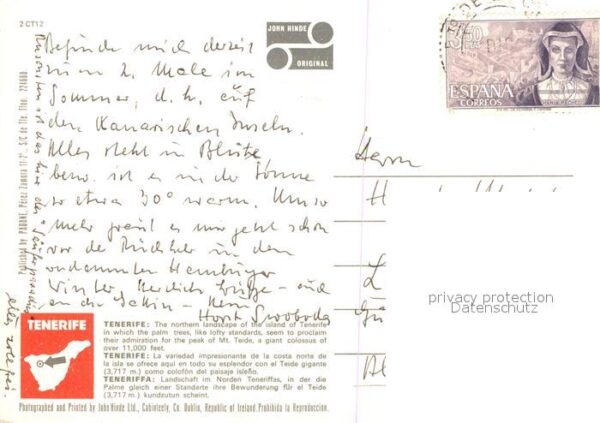 2 CT12
JOHN HINDE
ORIGINAL
3,50
ESPAÑA
CORREOS
Befinde mich derzeit
zum 2. Male im
Sommer, d. h. auf
den Kanarischen Inseln.
Alles steht in Blüte
bzw. ist es in der Sonne
so etwa 30° warm. Umso
mehr graut es mir jetzt schon
vor der Rückkehr in den
verdammten Hamburger
Winter. Herzliche Grüße - auch
an die Gattin - Ihr
Horst Swoboda
Herrn
H
privacy protection
Datenschutz
TENERIFE
TENERIFE: The northern landscape of the island of Tenerife
in which the palm trees, like lofty standards, seem to proclaim
their admiration for the peak of Mt. Teide, a giant colossus of
over 11,000 feet.
TENERIFE: La variedad impresionante de la costa norte de
la isla se ofrece aquí en todo su esplendor con el Teide gigante
(3,717 m.) como colofón del paisaje isleño.
TENERIFFA: Landschaft im Norden Teneriffas, in der die
Palme gleich einer Standarte ihre Bewunderung für el Teide
(3,717 m.) kundzutun scheint.
Photographed and Printed by John Hinde Ltd., Cabinteely, Co. Dublin, Republic of Ireland. Prohibida la Reproduccion.